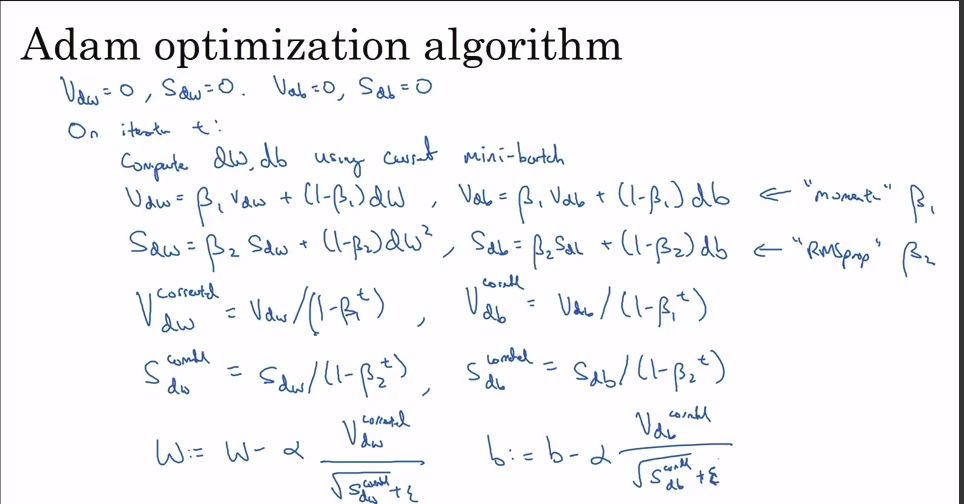 Adam optimization algorithm
V_dw = 0, S_dw = 0. V_db = 0, S_db = 0
On t:
Compute dW, db using current mini-batch
V_dw = β₁ V_dw + (1-β₁) dW, V_db = β₁ V_db + (1-β₁) db ← "moment" β₁
S_dw = β₂ S_dw + (1-β₂) dW², S_db = β₂ S_db + (1-β₂) db ← "RMSprop" β₂
V_dw^corrected = V_dw/(1-β₁^t), V_db^corrected = V_db/(1-β₁^t)
S_dw^corrected = S_dw/(1-β₂^t), S_db^corrected = S_db/(1-β₂^t)
W := W - α V_dw^corrected / √S_dw^corrected + ε b := b - α V_db^corrected / √S_db^corrected + ε